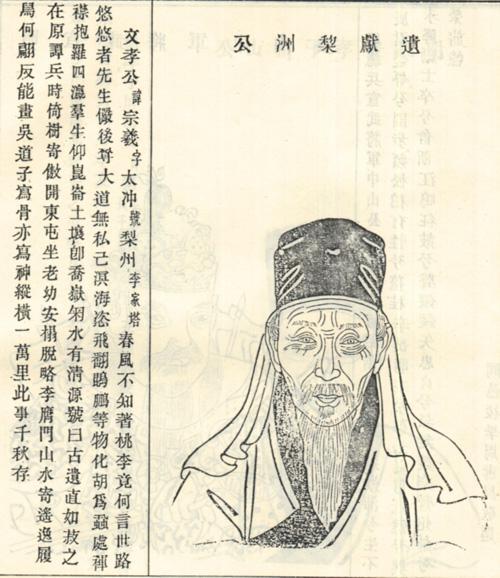 遺獻梨洲公
文孝公諱宗羲字太冲號梨州李家塔春風不知著桃李竟何言世路
悠悠者先生儼後尊大道無私己溟海恣飛翻鵾鵬等物化胡爲蝨處褌
襟抱羅四瀛羣生仰崑崙土壤卽喬嶽水有淸源號曰古遺直如茲之
在原譚兵時倚樹寄傲開東屯坐老幼安榻脫略李膺門山水寄遙逸履
舄何翩反能畫吳道子寫骨亦寫神縱橫一萬里此事千秋存